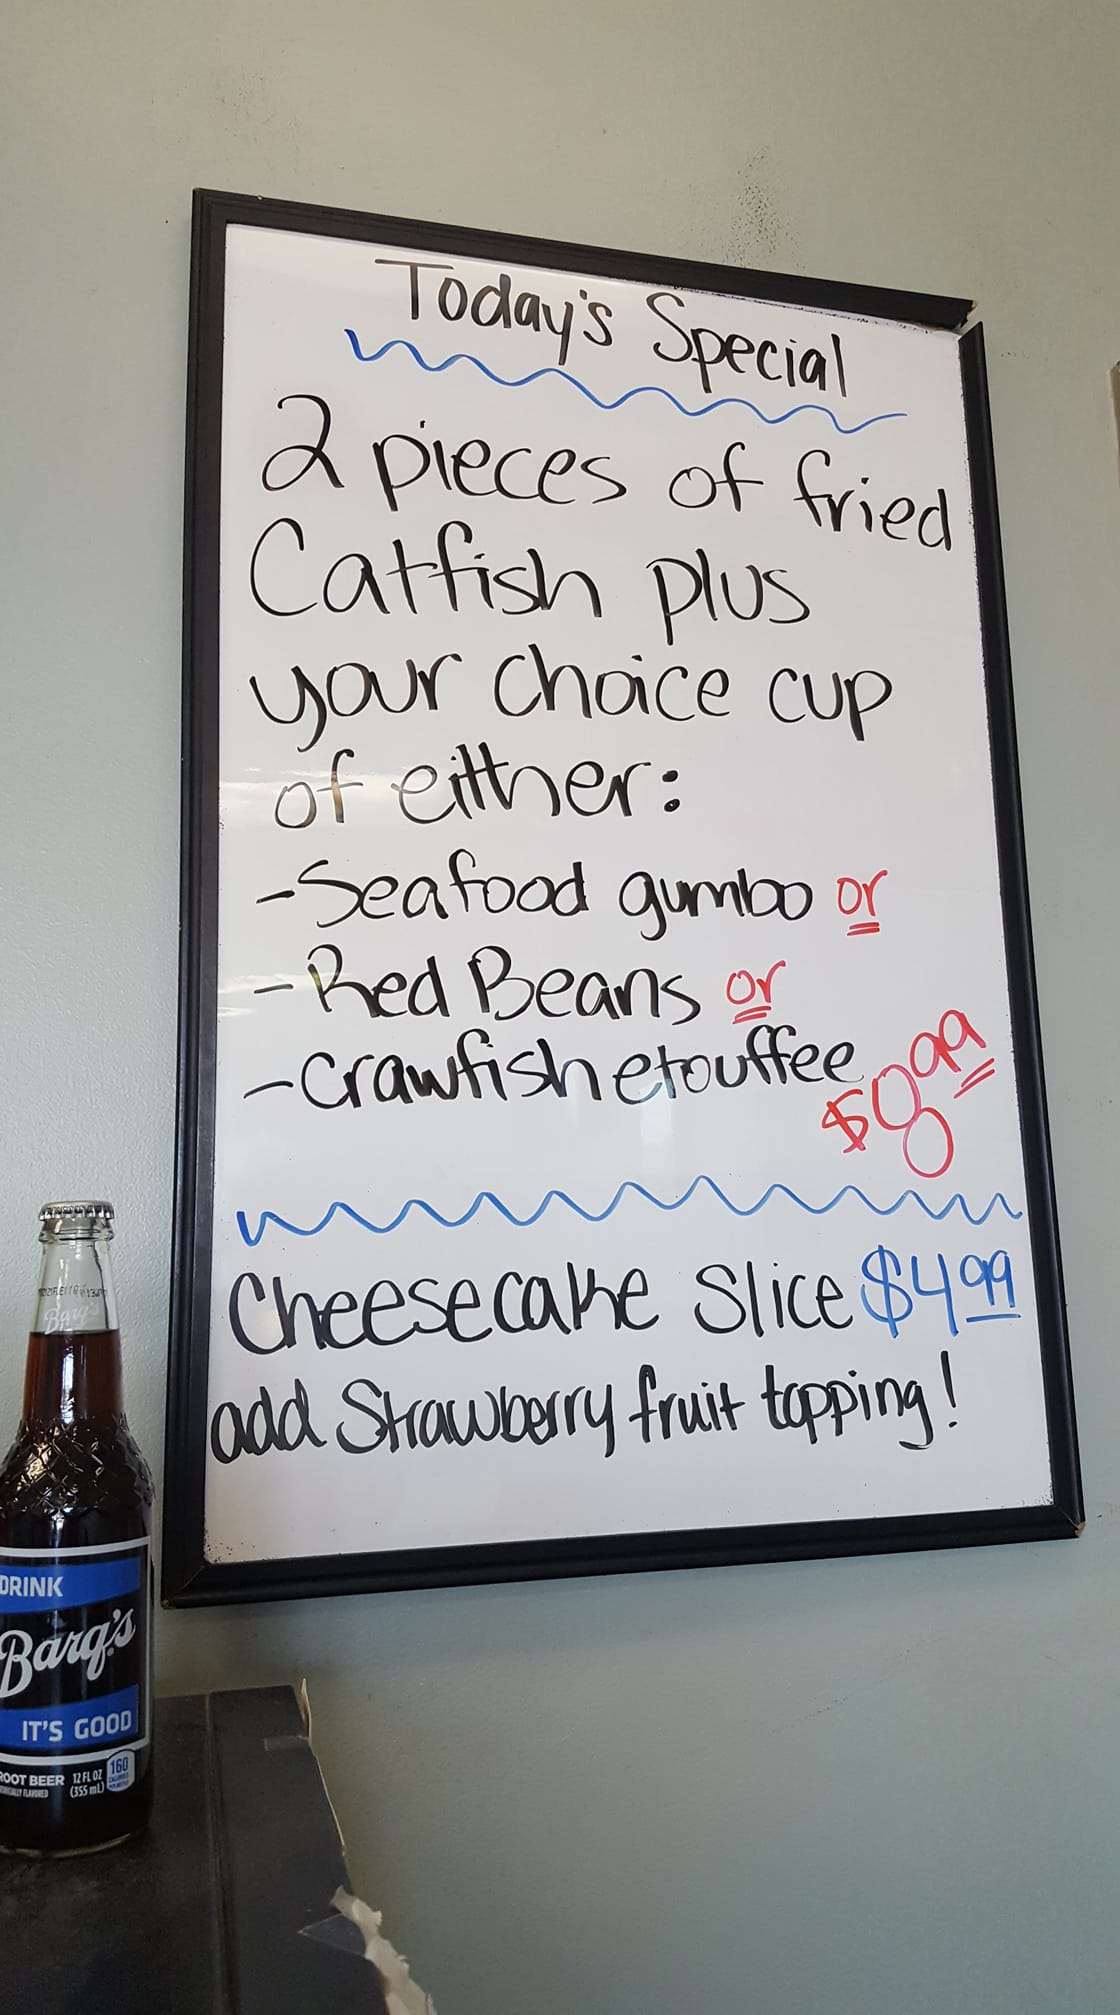 Today's Special
2 pieces of fried
Catfish plus
your choice cup
of either:
-Seafood gumbo or
-Red Beans or
-Crawfish etouffee $8.99
Cheesecake Slice $4.99
add Strawberry fruit topping!
Barq's
DRINK
Barq's
IT'S GOOD
ROOT BEER 12 FL OZ (355 mL) 160